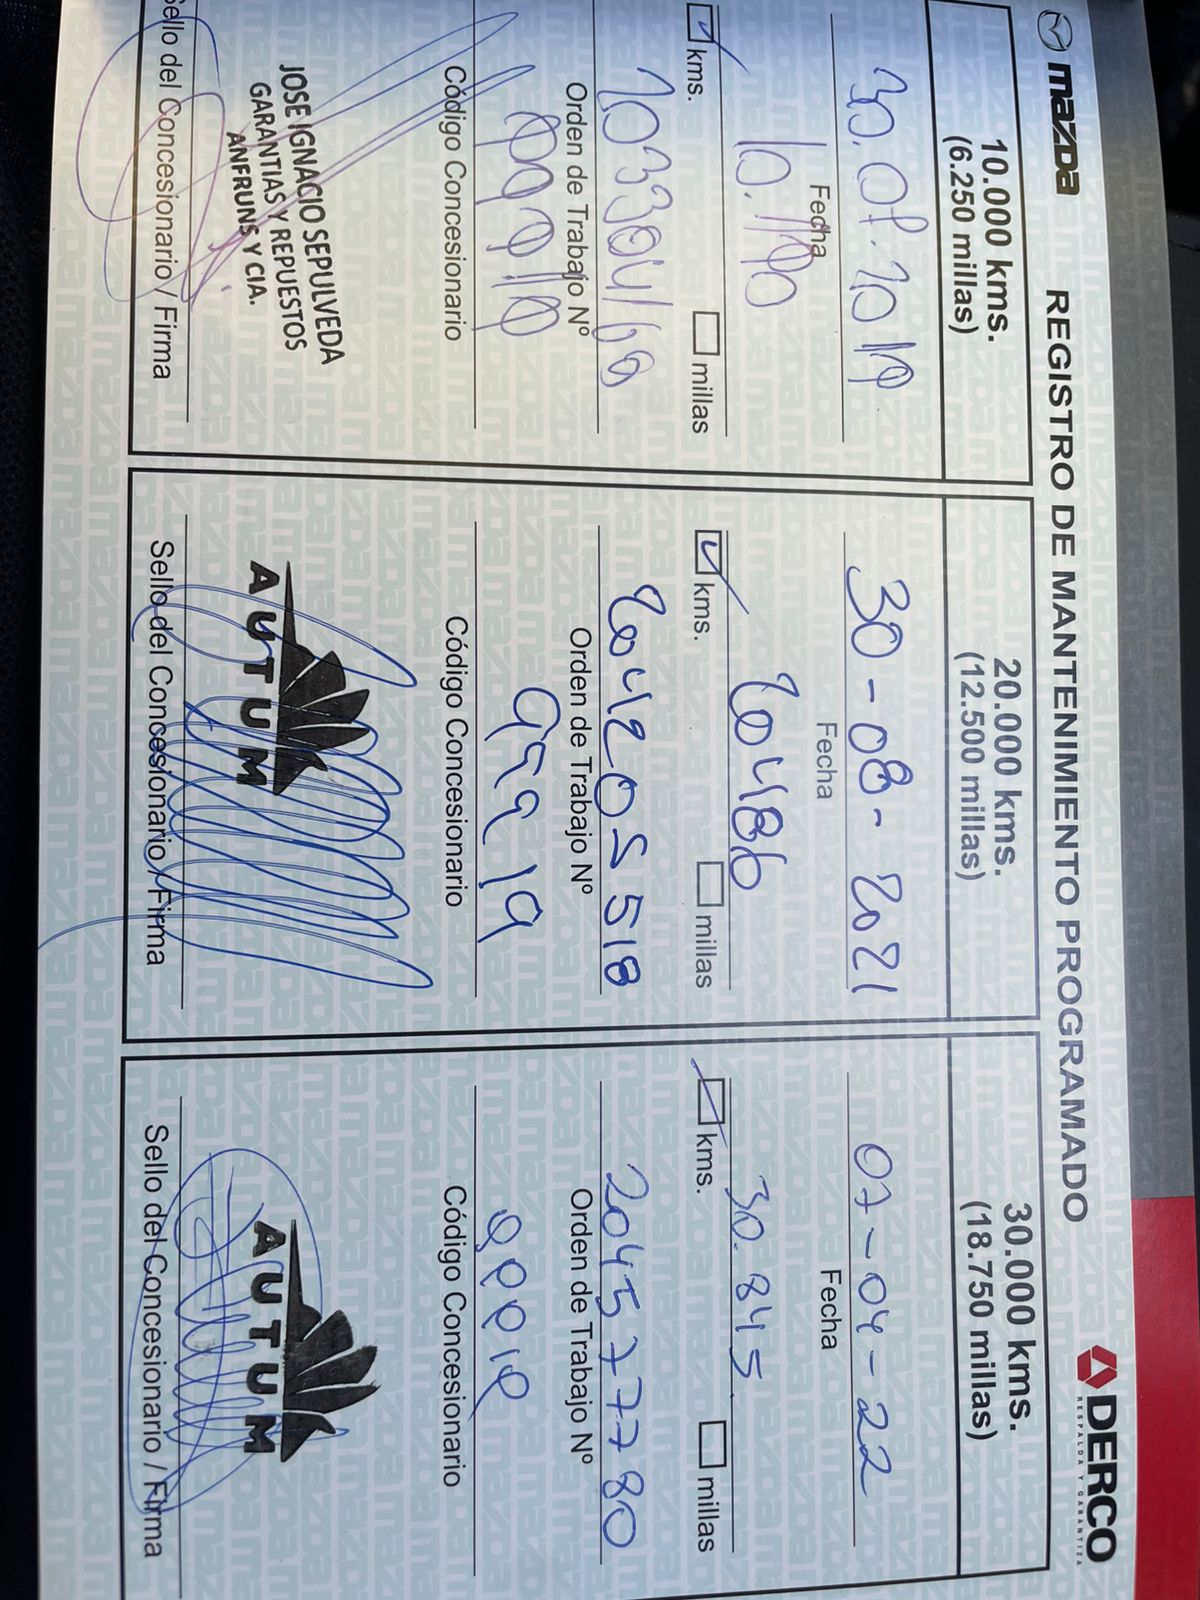 mazda
REGISTRO DE MANTENIMIENTO PROGRAMADO
DERCO
RESPALDA Y GARANTIZA
10.000 kms.
(6.250 millas)
Fecha
kms.
millas
Orden de Trabajo Nº
Código Concesionario
JOSE IGNACIO SEPULVEDA
GARANTIAS Y REPUESTOS
ANFRUNS Y CIA.
Sello del Concesionario / Firma
20.000 kms.
(12.500 millas)
30-08-2021
Fecha
20486
kms.
millas
204205518
Orden de Trabajo Nº
99919
Código Concesionario
AUTUM
Sello del Concesionario / Firma
30.000 kms.
(18.750 millas)
07-04-22
Fecha
30.845
kms.
millas
204577780
Orden de Trabajo Nº
Código Concesionario
AUTUM
Sello del Concesionario / Firma